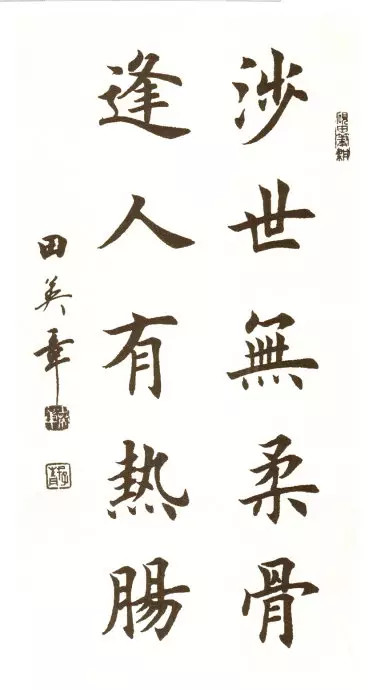 涉世無柔骨
逢人有熱腸
田英章